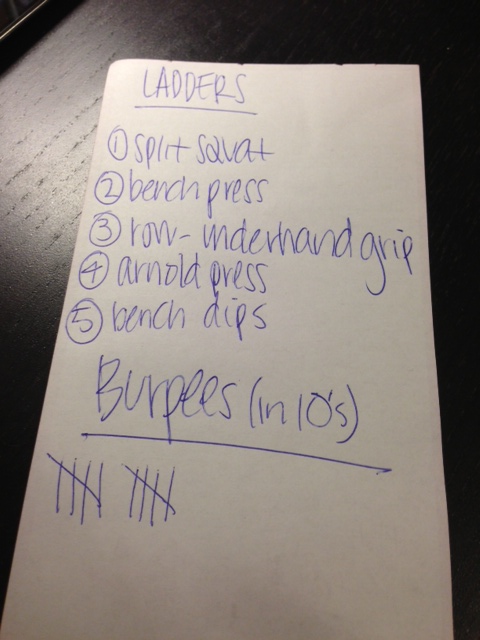 LADDERS
① split squat
② bench press
③ row - underhand grip
④ arnold press
⑤ bench dips
Burpees (in 10's)